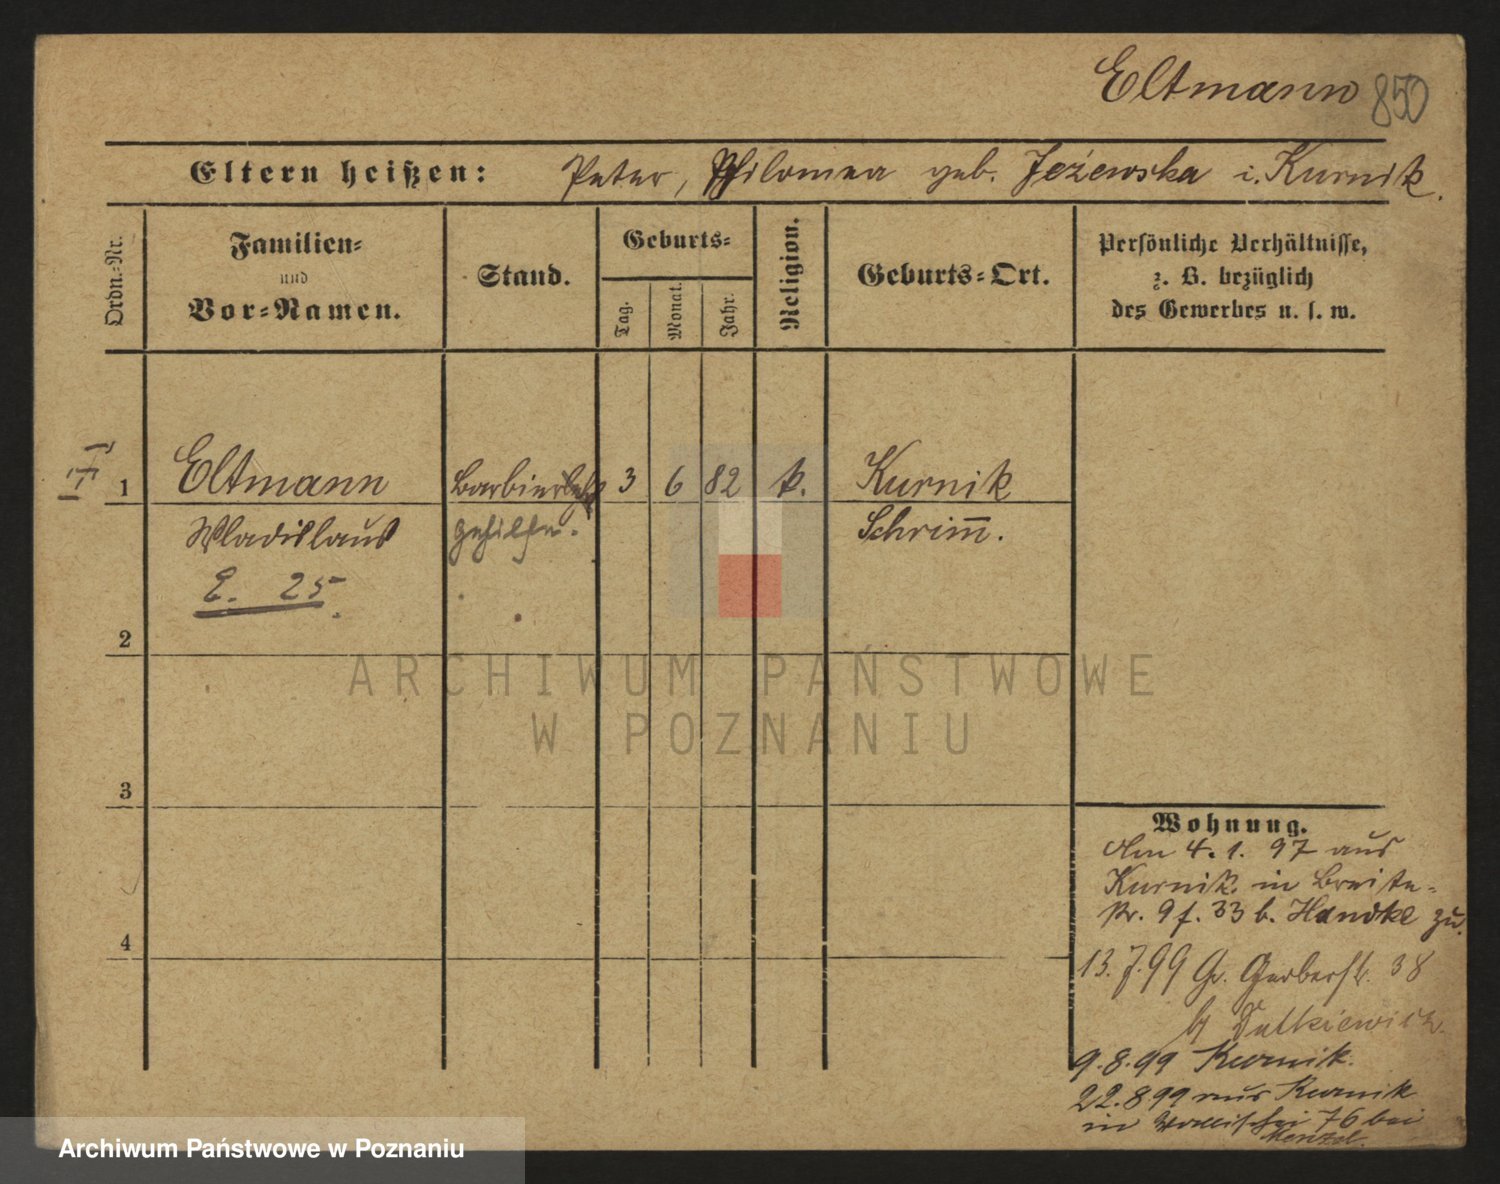 Eltmann 850
Eltern heißen: Peter, Philomea geb. Jeżewska i. Kurnik.
Ordn.-Nr.
Familien-
und
Vor-Namen.
Stand.
Geburts-
Tag.
Monat.
Jahr.
Religion.
Geburts-Ort.
Persönliche Verhältnisse,
z. B. bezüglich
des Gewerbes u. s. w.
1 Eltmann Barbier 3 6 82 k. Kurnik
Wladislaus gehilfe. Schrim̅.
E. 25.
2
3
4
Wohnung.
Am 4.1.97 aus
Kurnik in Breite-
str. 9 f. 33 b. Handke zu.
13.7.99 Gr. Gerberstr. 38
b/ Dutkiewicz.
9.8.99 Kurnik.
22.8 99 aus Kurnik
in Wallischei 76 bei
Menzel.
ARCHIWUM PAŃSTWOWE
W POZNANIU
Archiwum Państwowe w Poznaniu